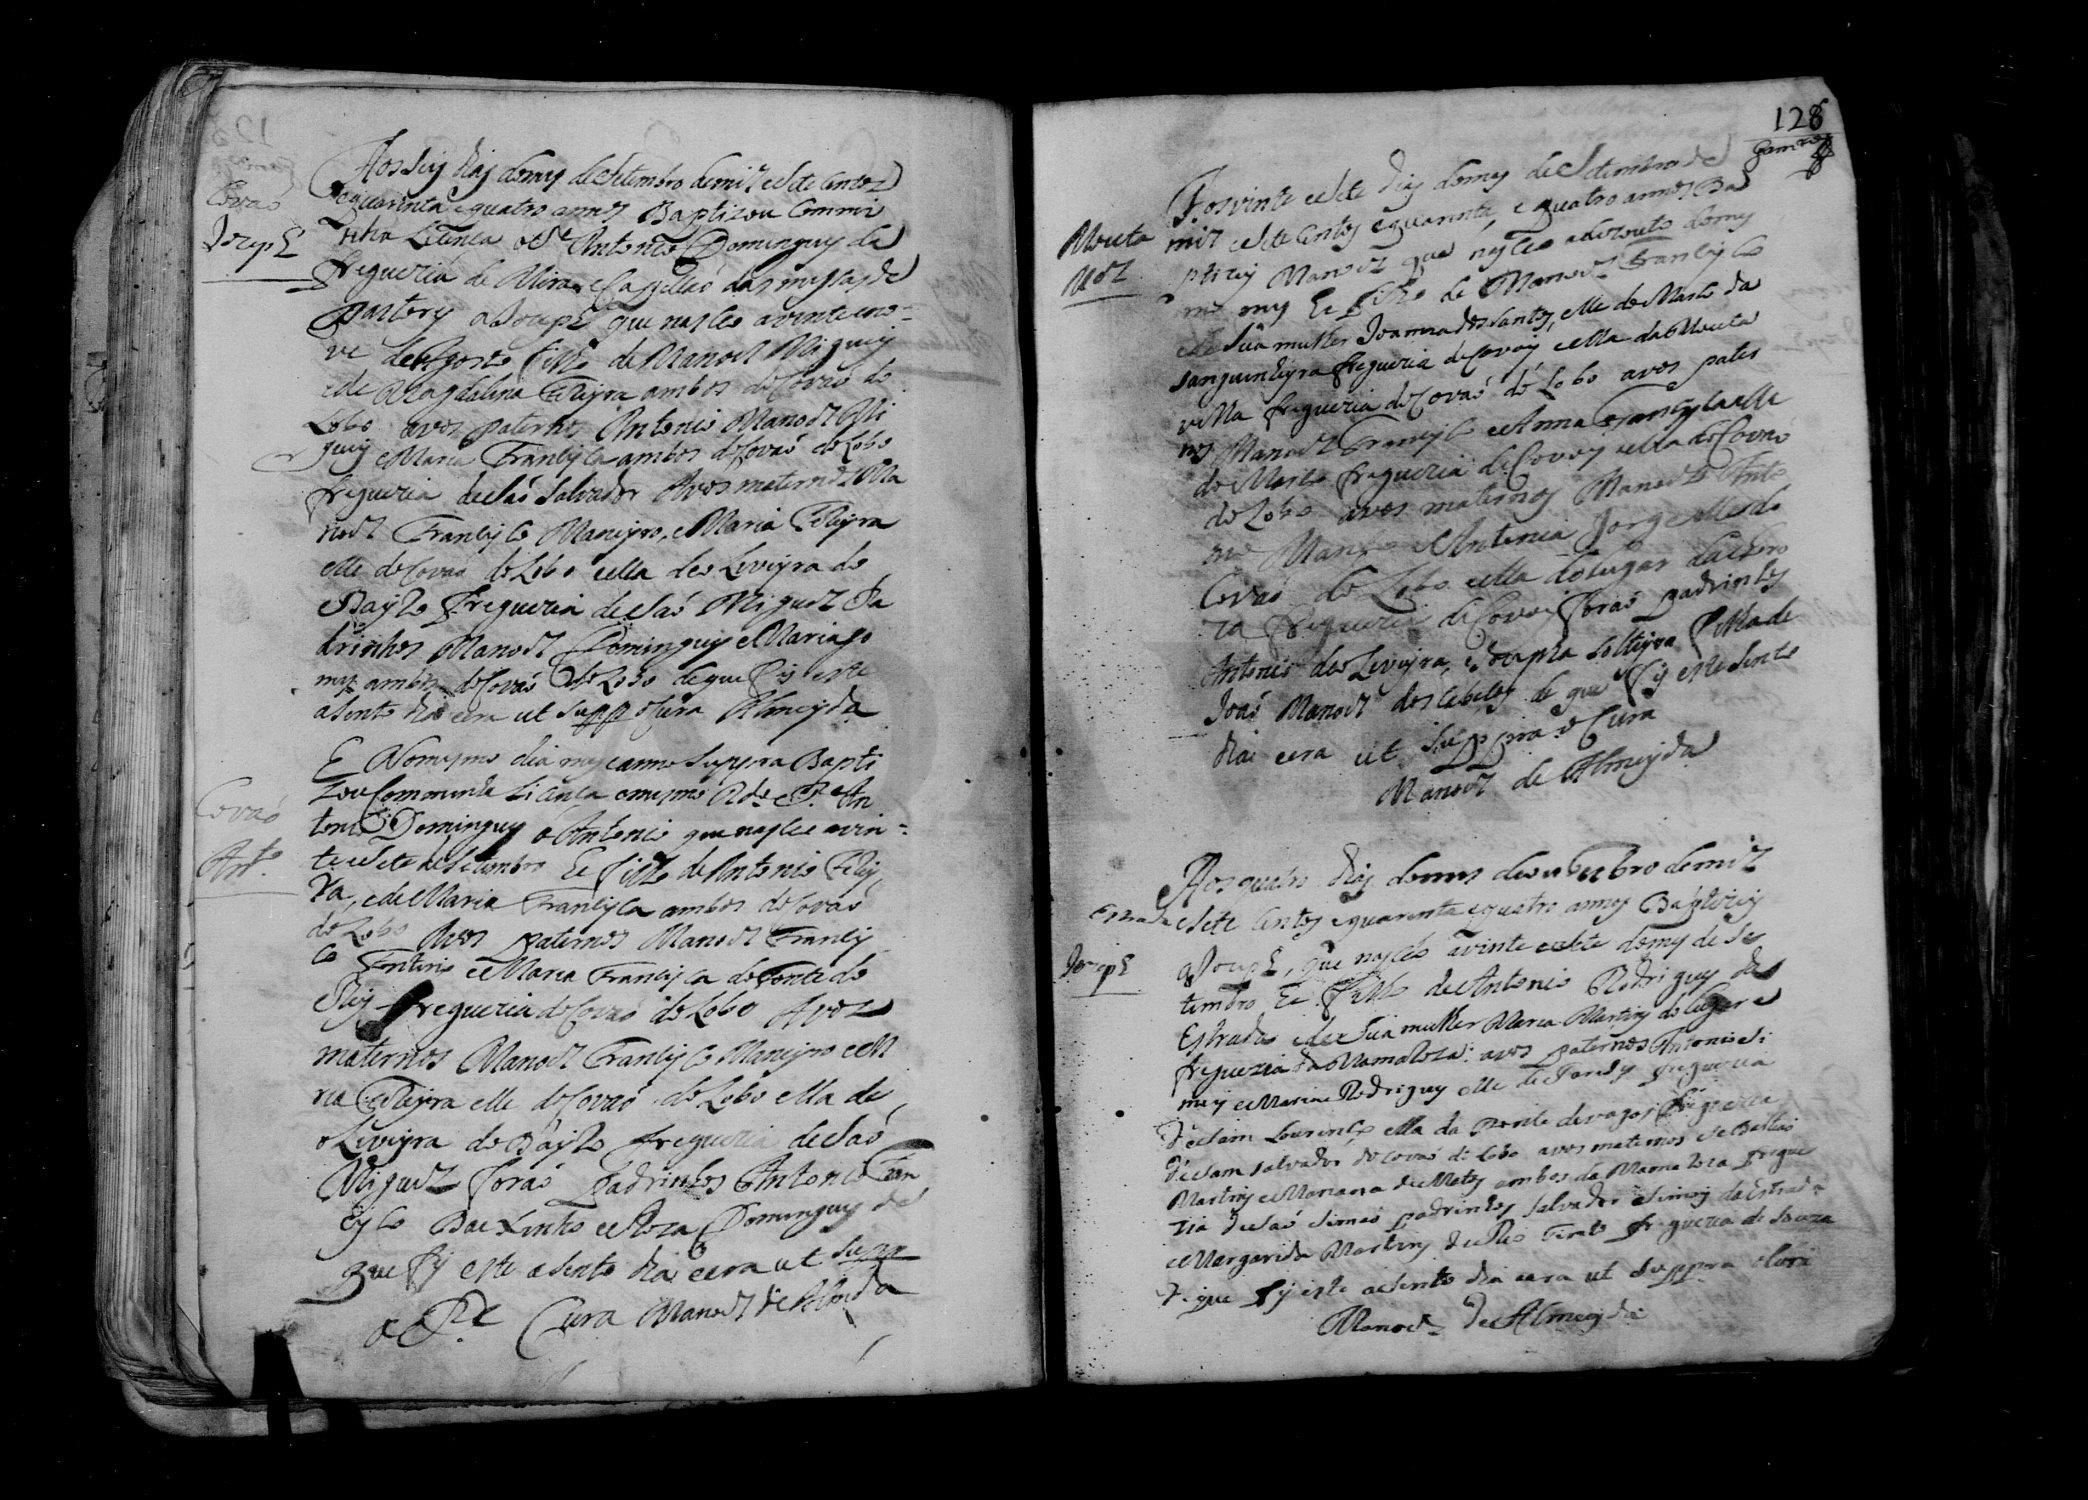 Covaó
Joseph
Aos seis dias do mes de Setembro de mil e sete centos
e quarenta e quatro annos Baptizou Com mi
nha Licenca o P.e Antonio Domingues da
freguezia de Mira
a Joseph que nasceo a vinte e no-
ve de Agosto filho de Manoel Migueis
e de Magdalena ambos de Covaó do
Lobo avos paternos Antonio Manoel Mi
gueis e Maria Francisca ambos de Covaó do Lobo
freguezia de Saó Salvador Avos maternos Ma
noel Francisco e Maria
elle de Covaó do Lobo e ella de oLiveyra do
Bayro freguezia de Saó Miguel Pa
drinhos Manoel Domingues e Maria
ambos de Covaó do Lobo de que fis este
asento dia e era ut supra o Cura Almeyda
Covaó
Ant.o
E No mesmo dia mes e anno supra Bapti
zou Com minha Licenca o mesmo R.do P.e An
tonio Domingues a Antonio que nasceo a vin-
te e sete de Setembro he filho de Antonio
e de Maria Francisca ambos de Covaó
do Lobo Avos paternos Manoel Francis
co e Maria Francisca da Fonte do
freguezia de Covaó do Lobo Avos
maternos Manoel Francisco e M
ria elle de Covaó do Lobo ella de
oLiveyra do Bayro freguezia de Saó
Miguel foraó padrinhos Antonio Fran
cysco e Roza Domingues de
que fis este asento dia e era ut supra
o P.e Cura Manoel de Almeida
128
Mouta
M.el
Aos vinte e sete dias do mes de Setembro de
mil e sete centos e quarenta e quatro annos Ba
ptizey Manoel que nasceo a dezouto do mes
mo mes he filho de Manoel Francisco
e de sua mulher Joanna dos Santos, elle de
Sanguinheyra freguezia de Covoens e ella da Mouta
velha freguezia de Covaó do Lobo avos pater
nos Manoel Francisco e Anna Francisca elle
do freguezia de Covoens e ella de Covaó
do Lobo avos maternos Manoel Anto
nio e Antonia Jorge elle de
Covaó do Lobo e ella do Lugar
freguezia de Covoens foraó padrinhos
Antonio de oLiveyra, e Josepha solteyra filha de
Joaó Manoel de que fis este asento
dia e era ut supra o Cura
Manoel de Almeyda
Estrada
Joseph
Aos quatro dias do mes de outubro de mil
e sete centos e quarenta e quatro annos Baptizey
a Joseph, que nasceo a vinte e sete do mes de Se
tembro he filho de Antonio Rodrigues da
Estrada e de sua mulher Maria Martins do Lugar e
freguezia da Mamaroza: avos paternos Antonio Si
moes e Maria Rodrigues elle de freguezia
de Sam Lourenço ella da ponte de vagos freguezia
de Sam Salvador de Covaó do Lobo avos maternos Sebastiaó
Martins e Mariana de Matos ambos da Mamaroza fregue
zia de Saó Simaó padrinhos Salvador Simoes da Estrada
e Margarida Martins de Rio Tinto freguezia de Souza
de que fis este asento dia e era ut supra o Cura
Manoel de Almeyda